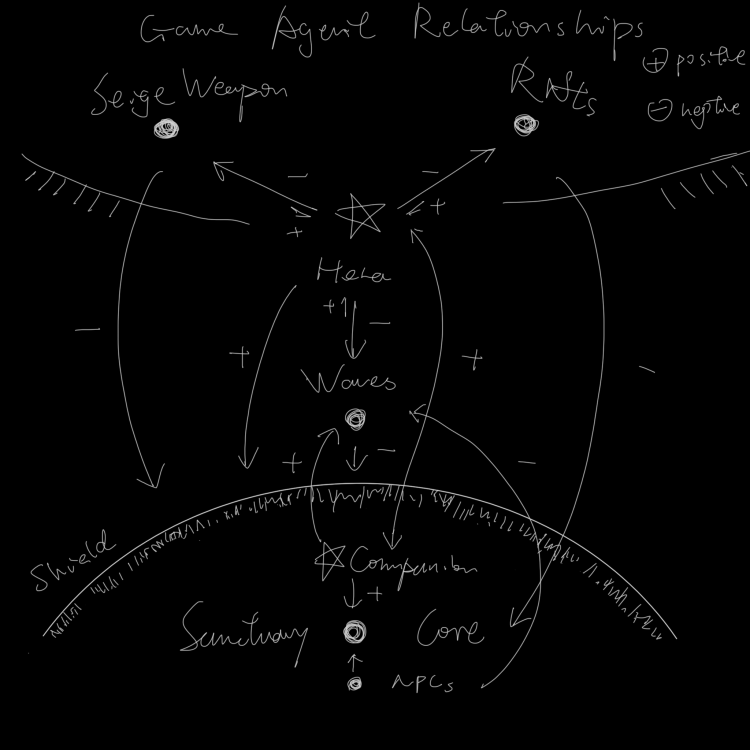 Game Agent Relationships
⊕ positive
Seige Weapon
RAts
⊖ negtive
−
−
+
+
Hero
+
−
−
+
+
−
Waves
+
−
−
Shield
Companion
+
Sanctuary Core
NPCs